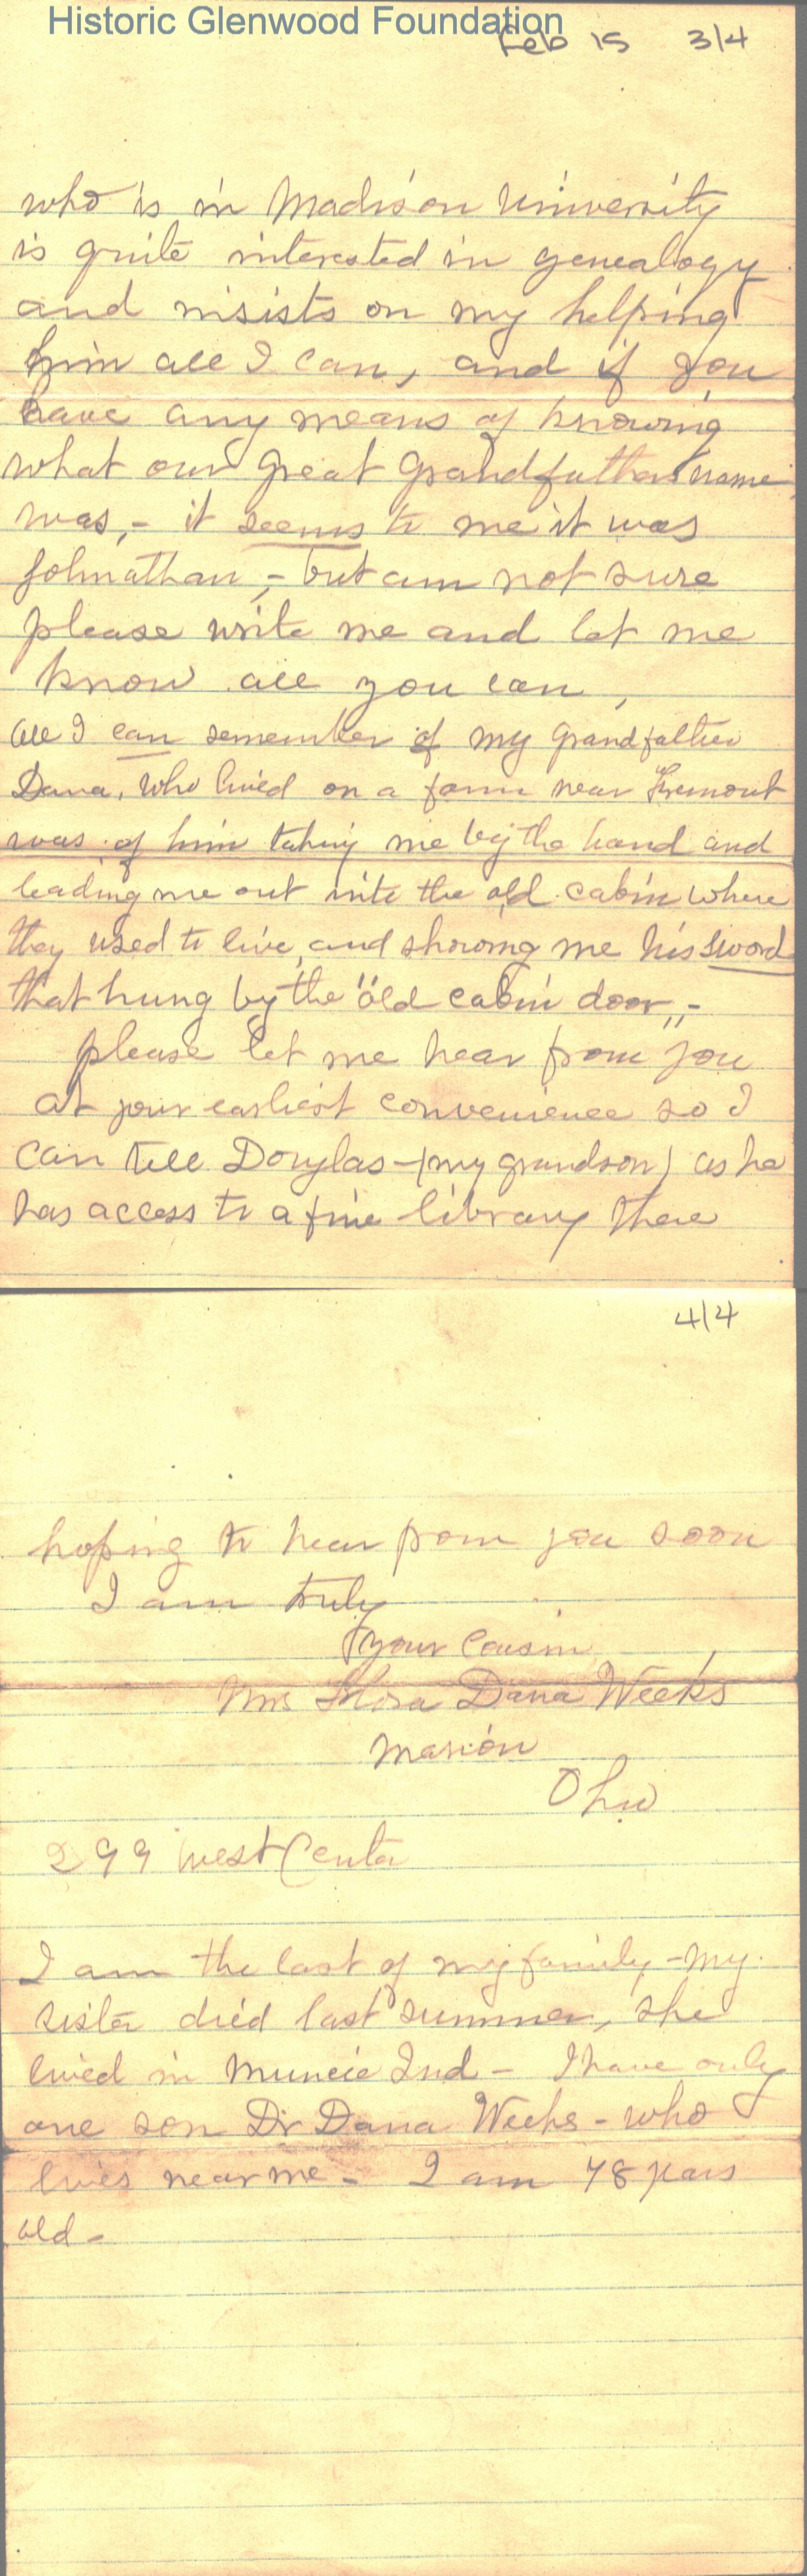 Historic Glenwood Foundation
Feb 15 3/4
who is in Madison University
is quite interested in genealogy
and insists on my helping
him all I can, and if you
have any means of knowing
what our great grandfathers name
was, - it seems to me it was
Johnathan, - but am not sure
please write me and let me
know all you can,
all I can remember of my Grandfather
Dana, who lived on a farm near Fremont
was of him taking me by the hand and
leading me out into the old cabin where
they used to live, and showing me his sword
that hung by the "old cabin door", -
please let me hear from you
at your earliest convenience so I
can tell Douglas - (my grandson) as he
has access to a fine library there
4/4
hoping to hear from you soon
I am truly
your Cousin
Mrs Dana Weeks
Marion
Ohio
299 West Center
I am the last of my family - my
sister died last summer, she
lived in Muncie Ind - I have only
one son Dr Dana Weeks - who
lives near me - I am 78 years
old -